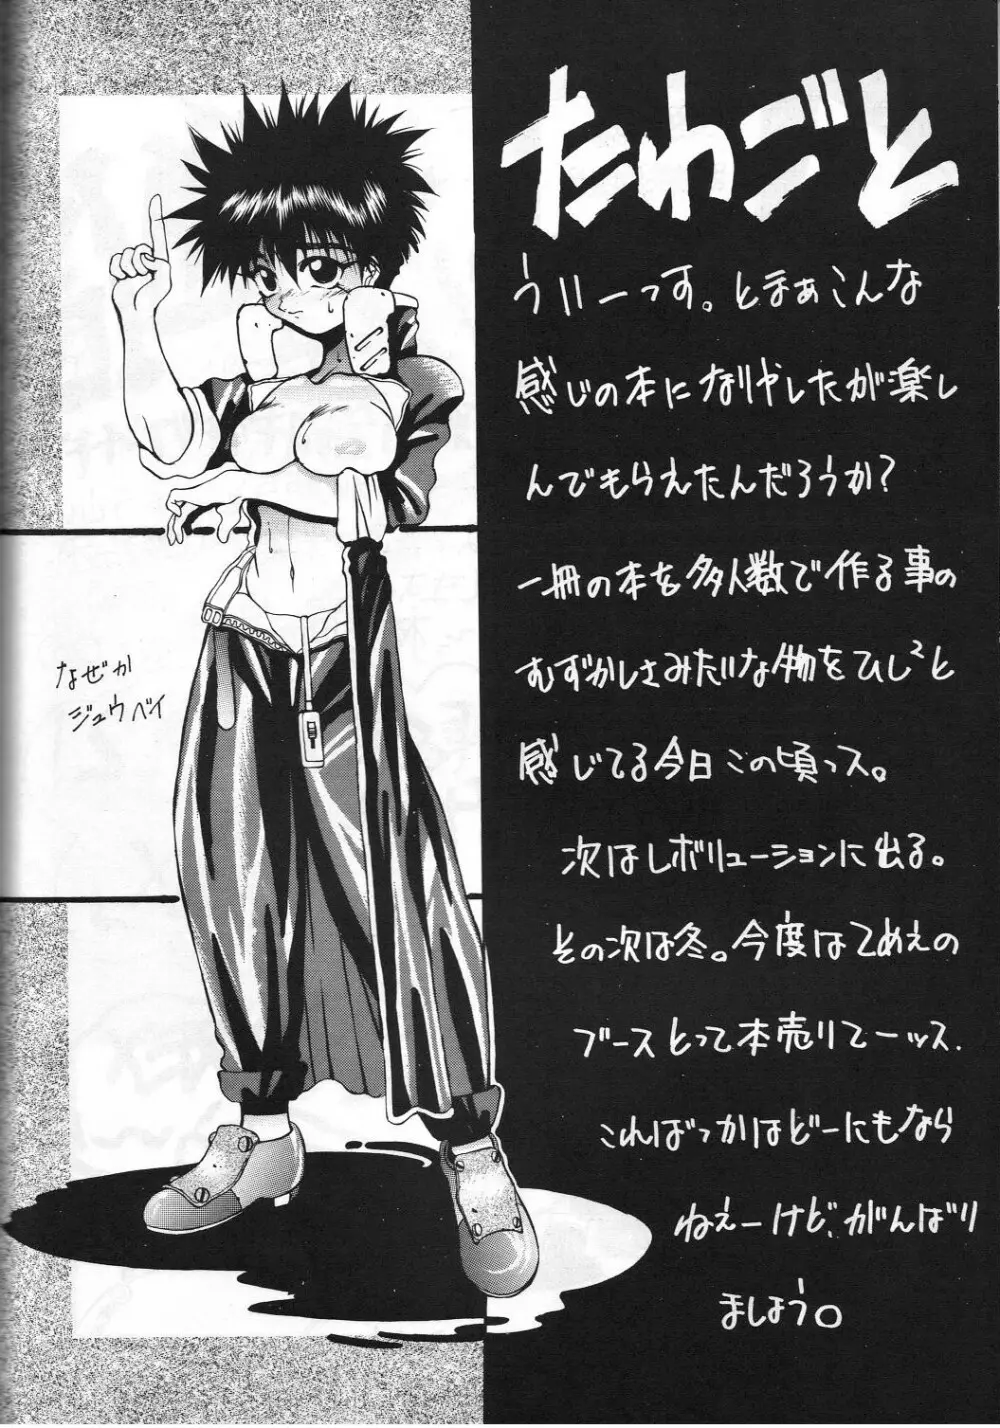 たわごと
うぃーっす。とまぁこんな
感じの本になりやしたが楽し
んでもらえたんだろうか?
一冊の本を多人数で作る事の
むずかしさみたいな物をひし²と
感じてる今日この頃っス。
次はレボリューションに出る。
その次は冬。今度はてめえの
ブースとって本売りてーッス.
こればっかはどーにもなら
ねぇーけど、がんばり
ましょう。
なぜか
ジュウベイ